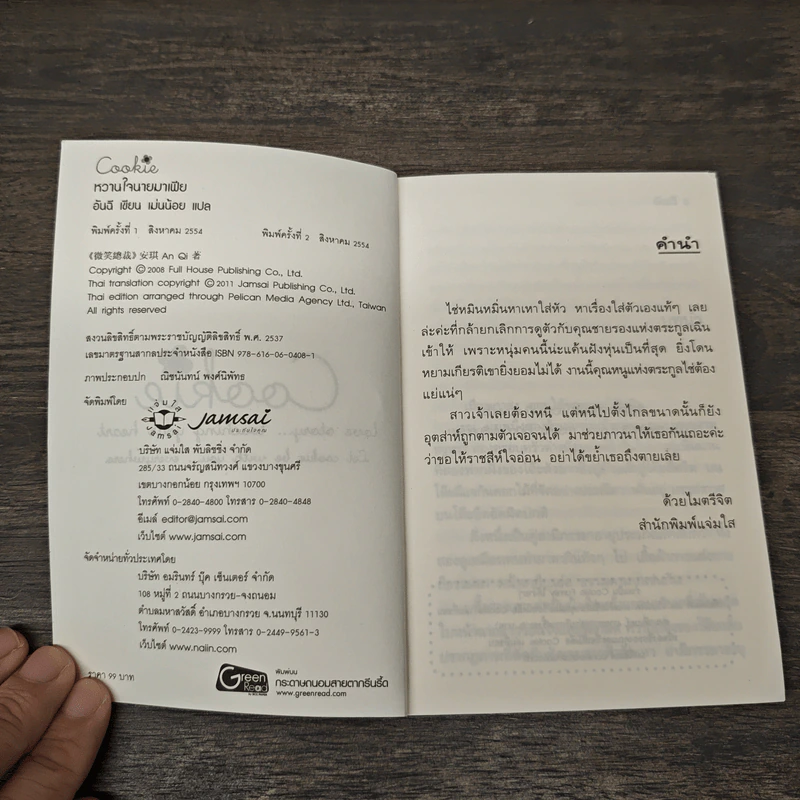 Cookie
หวานใจนายมาเฟีย
อันฉี เขียน เม่นน้อย แปล
พิมพ์ครั้งที่ 1 สิงหาคม 2554 พิมพ์ครั้งที่ 2 สิงหาคม 2554
《微笑總裁》安琪 An Qi 著
Copyright © 2008 Full House Publishing Co., Ltd.
Thai translation copyright © 2011 Jamsai Publishing Co., Ltd.
Thai edition arranged through Pelican Media Agency Ltd., Taiwan
All rights reserved
สงวนลิขสิทธิ์ตามพระราชบัญญัติลิขสิทธิ์ พ.ศ. 2537
เลขมาตรฐานสากลประจำหนังสือ ISBN 978-616-06-0408-1
ภาพประกอบปก ณิชนันทน์ พงศ์นิพัทธ
จัดพิมพ์โดย
แจ่มใส
JAMSAI
Jamsai
ประทับใจคุณ
บริษัท แจ่มใส พับลิชชิ่ง จำกัด
285/33 ถนนจรัญสนิทวงศ์ แขวงบางขุนศรี
เขตบางกอกน้อย กรุงเทพฯ 10700
โทรศัพท์ 0-2840-4800 โทรสาร 0-2840-4848
อีเมล์ editor@jamsai.com
เว็บไซต์ www.jamsai.com
จัดจำหน่ายทั่วประเทศโดย
บริษัท อมรินทร์ บุ๊ค เซ็นเตอร์ จำกัด
108 หมู่ที่ 2 ถนนบางกรวย-จงถนอม
ตำบลมหาสวัสดิ์ อำเภอบางกรวย จ.นนทบุรี 11130
โทรศัพท์ 0-2423-9999 โทรสาร 0-2449-9561-3
เว็บไซต์ www.naiin.com
ราคา 99 บาท
Green Read
พิมพ์บน
กระดาษถนอมสายตากรีนรี้ด
www.greenread.com
คำนำ
ไช่หมินหมิ่นหาเหาใส่หัว หาเรื่องใส่ตัวเองแท้ๆ เลย
ล่ะค่ะที่กล้ายกเลิกการดูตัวกับคุณชายรองแห่งตระกูลเฉิน
เข้าให้ เพราะหนุ่มคนนี้น่ะแค้นฝังหุ่นเป็นที่สุด ยิ่งโดน
หยามเกียรติเขายิ่งยอมไม่ได้ งานนี้คุณหนูแห่งตระกูลไช่ต้อง
แย่แน่ๆ
สาวเจ้าเลยต้องหนี แต่หนีไปตั้งไกลขนาดนั้นก็ยัง
อุตส่าห์ถูกตามตัวเจอจนได้ มาช่วยภาวนาให้เธอกันเถอะค่ะ
ว่าขอให้ราชสีห์ใจอ่อน อย่าได้ขย้ำเธอถึงตายเลย
ด้วยไมตรีจิต
สำนักพิมพ์แจ่มใส